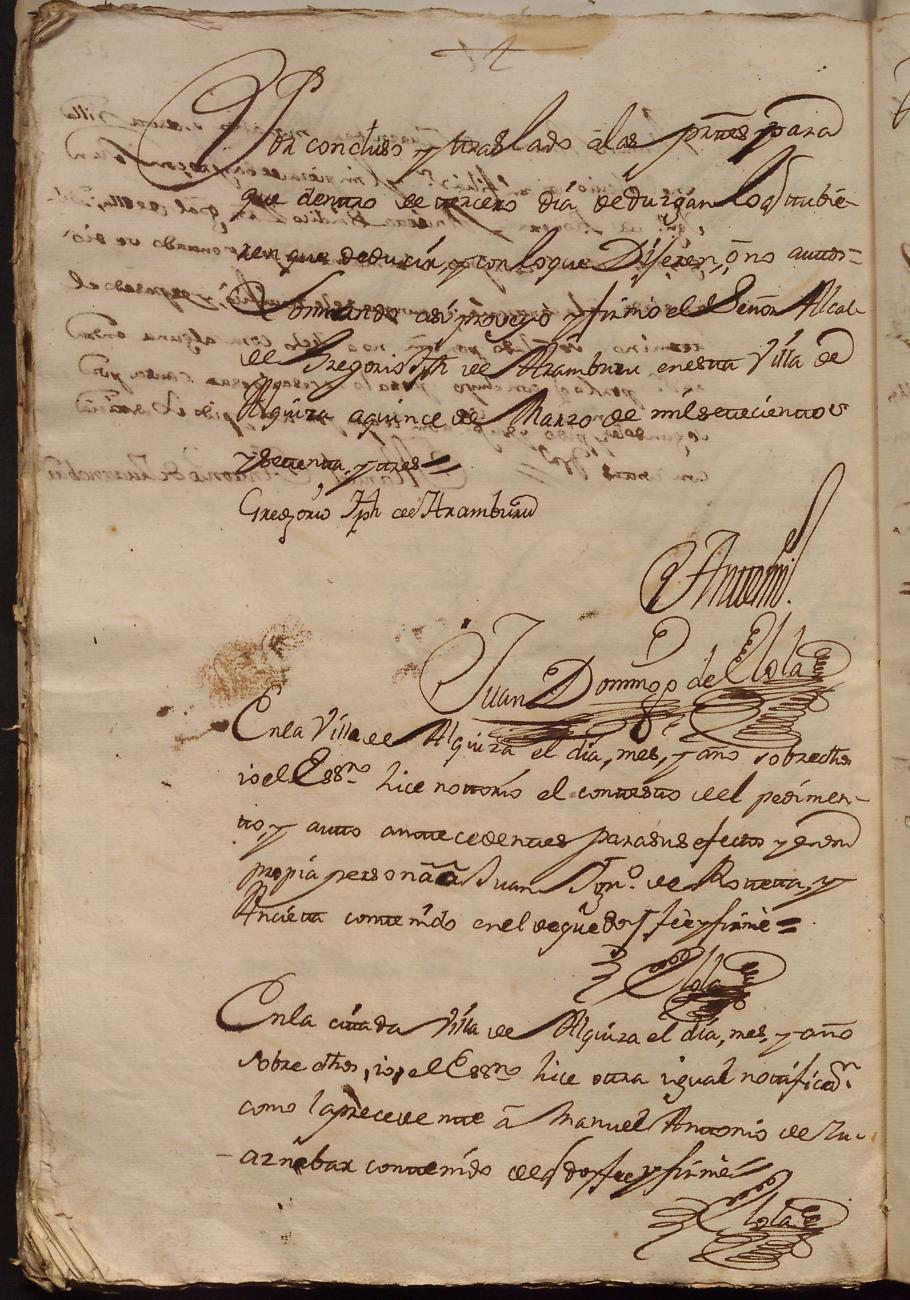 Por concluso y traslado a las partes para
que dentro de tercero dia deduzgan los q tubie-
ren que deducir, y con lo que Dijeren, o no autos=
Por así proveyo y firmo el Señor Alcal-
de Gregorio Jph de Aramburu en esta Villa de
Alquiza a quince de Marzo de mil setecientos
y setenta, y tres=
Gregorio Jph de Aramburu
Antemi.
Juan Domingo de Elola
En la Villa de Alquiza el dia, mes, y año sobredhos
io el Essno hice notorio el contesto del pedimen-
to, y auto antecedentes para sus efectos y en su
propia persona a Juan Ign.º de Rotteta, y
Ancieta contenido en el de que Doy fee y firmè=
Elola
En la citada Villa de Alquiza el dia, mes, y año
sobre dhos, io, el Essno hice otra igual notificaon
como la precedente â Manuel Antonio de Zu-
aznabar contenido de q doy fee y firmè=
Elola